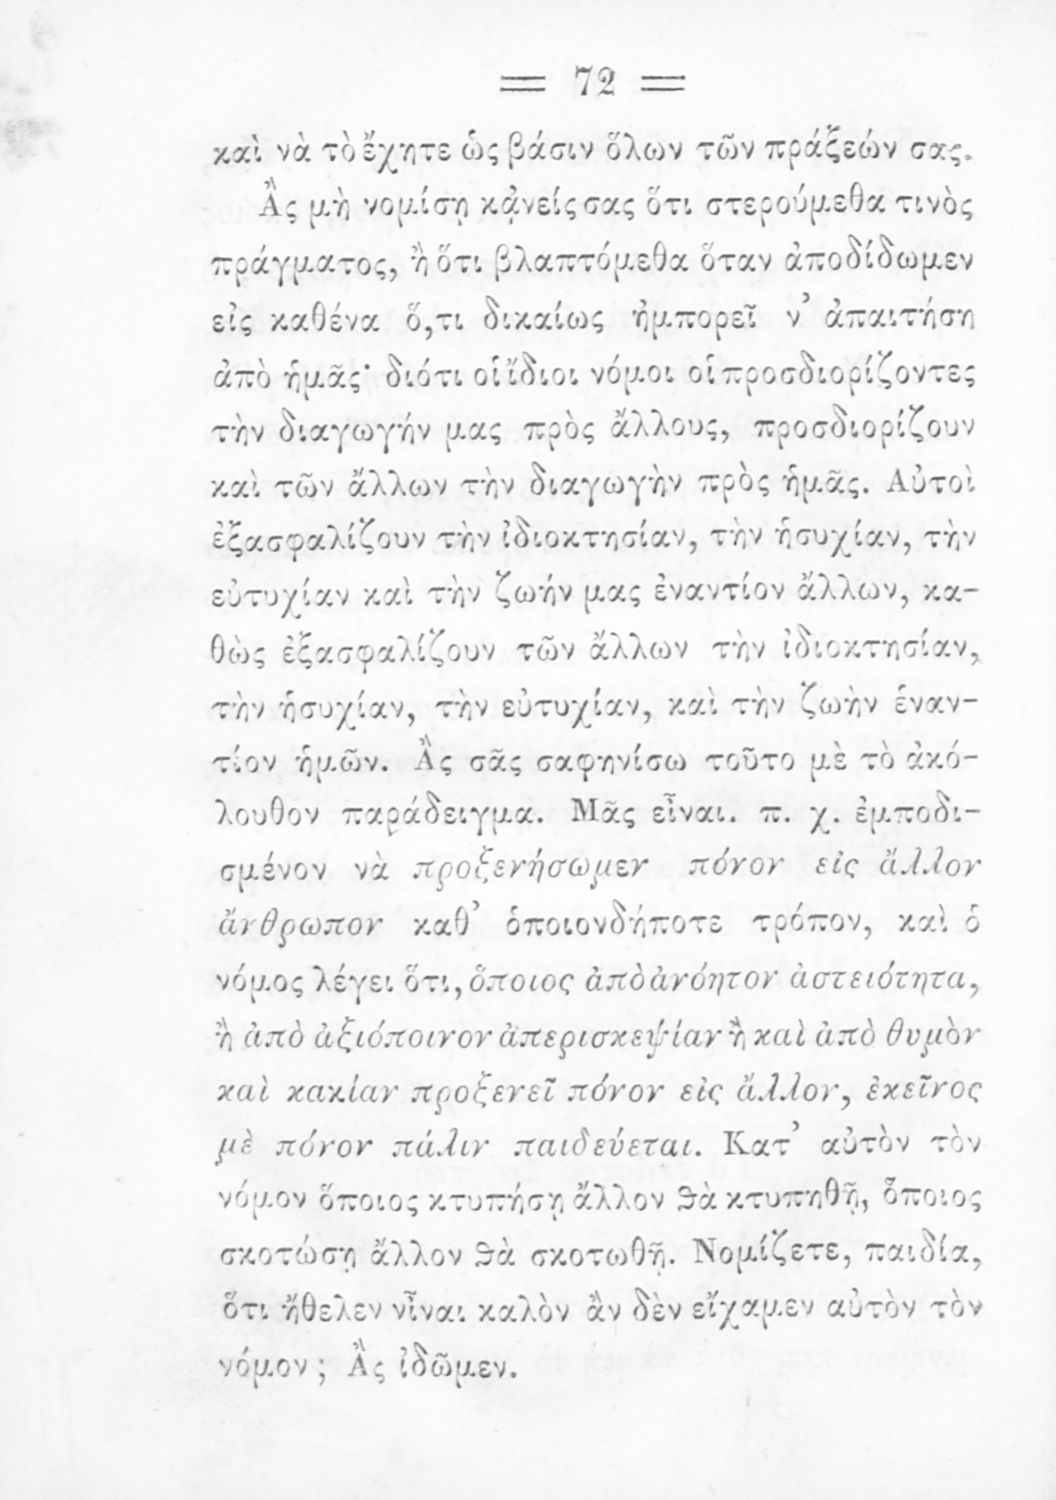 = 72 =
καὶ νὰ τὸ ἔχητε ὡς βάσιν ὅλων τῶν πράξεών σας.
Ἂς μὴ νομίσῃ κᾀνείς σας ὅτι στερούμεθα τινὸς
πράγματος, ἢ ὅτι βλαπτόμεθα ὅταν ἀποδίδωμεν
εἰς καθένα ὅ,τι δικαίως ἠμπορεῖ ν’ ἀπαιτήσῃ
ἀπὸ ἡμᾶς· διότι οἱ ἴδιοι νόμοι οἱ προσδιορίζοντες
τὴν διαγωγήν μας πρὸς ἄλλους, προσδιορίζουν
καὶ τῶν ἄλλων τὴν διαγωγὴν πρὸς ἡμᾶς. Αὐτοὶ
ἐξασφαλίζουν τὴν ἰδιοκτησίαν, τὴν ἡσυχίαν, τὴν
εὐτυχίαν καὶ τὴν ζωήν μας ἐναντίον ἄλλων, κα-
θὼς ἐξασφαλίζουν τῶν ἄλλων τὴν ἰδιοκτησίαν,
τὴν ἡσυχίαν, τὴν εὐτυχίαν, καὶ τὴν ζωὴν ἐναν-
τίον ἡμῶν. Ἂς σᾶς σαφηνίσω τοῦτο μὲ τὸ ἀκό-
λουθον παράδειγμα. Μᾶς εἶναι. π. χ. ἐμποδι-
σμένον νὰ προξενήσωμεν πόνον εἰς ἄλλον
ἄνθρωπον καθ’ ὁποιονδήποτε τρόπον, καὶ ὁ
νόμος λέγει ὅτι, ὅποιος ἀπὸ ἀνόητον ἀστειότητα,
ἢ ἀπὸ ἀξιόποινον ἀπερισκεψίαν ἢ καὶ ἀπὸ θυμὸν
καὶ κακίαν προξενεῖ πόνον εἰς ἄλλον, ἐκεῖνος
μὲ πόνον πάλιν παιδεύεται. Κατ’ αὐτὸν τὸν
νόμον ὅποιος κτυπήσῃ ἄλλον ϑὰ κτυπηθῇ, ὅποιος
σκοτώσῃ ἄλλον ϑὰ σκοτωθῇ. Νομίζετε, παιδία,
ὅτι ἤθελεν νἶναι καλὸν ἂν δὲν εἴχαμεν αὐτὸν τὸν
νόμον; Ἂς ἰδῶμεν.